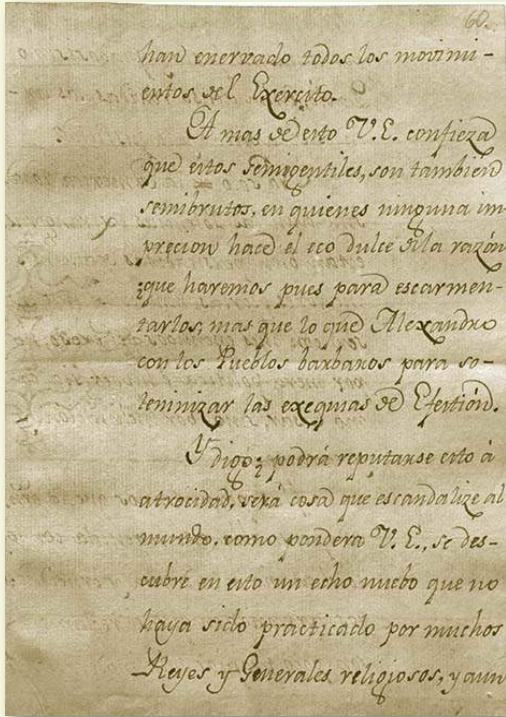 60.
han enervado todos los movimi-
entos del Exercito.
A mas de esto V.E. confieza
que estos Semigentiles, son tambien
semibrutos, en quienes ninguna im-
precion hace el eco dulce de la razón
¿que haremos pues para escarmen-
tarlos, mas que lo que Alexandro
con los Pueblos barbaros para so-
leninizar las exequias de Efestión.
Y digo ¿podrá reputarse esto á
atrocidad, será cosa que escandalize al
mundo, como pondera V.E., se des-
cubre en esto un echo nuebo que no
haya sido practicado por muchos
Reyes y Generales religiosos, y aun